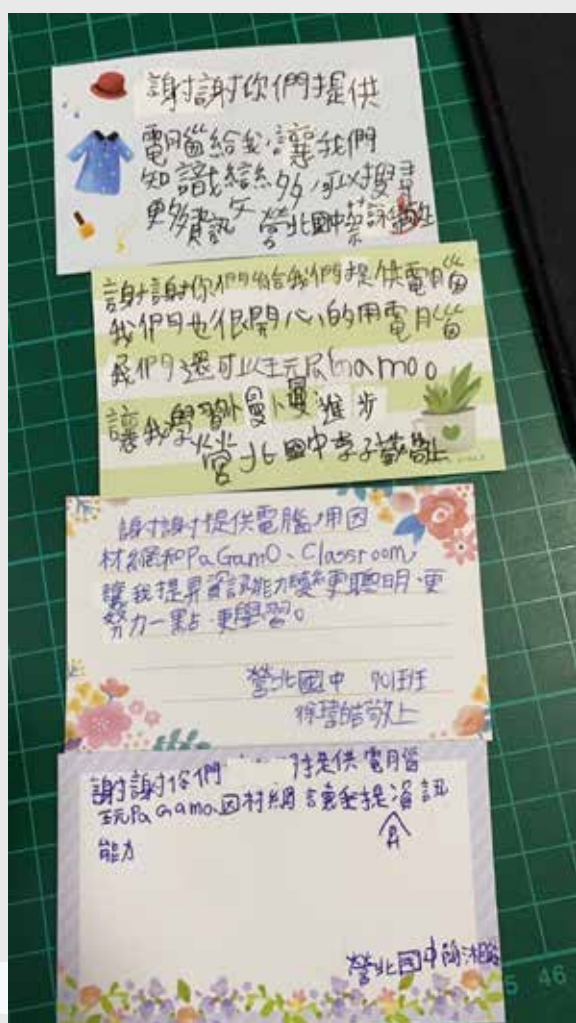 謝謝你們提供
電腦給我,讓我們
知識變多,可以搜尋
更多資訊
營北國中
謝謝你們給我們提供電腦
我們也很開心的用電腦
我們還可以玩PaGamo。
讓我學習慢慢進步
營北國中李子敬上
謝謝提供電腦,用因
材網和PaGamO、Classroom,
讓我提昇資訊能力變更聰明、更
努力一點、更學習。
營北國中 701班
徐 皓敬上
謝謝你們 提供電腦
玩PaGamo因材網讓我提資訊
能力
營北國中簡湘
46